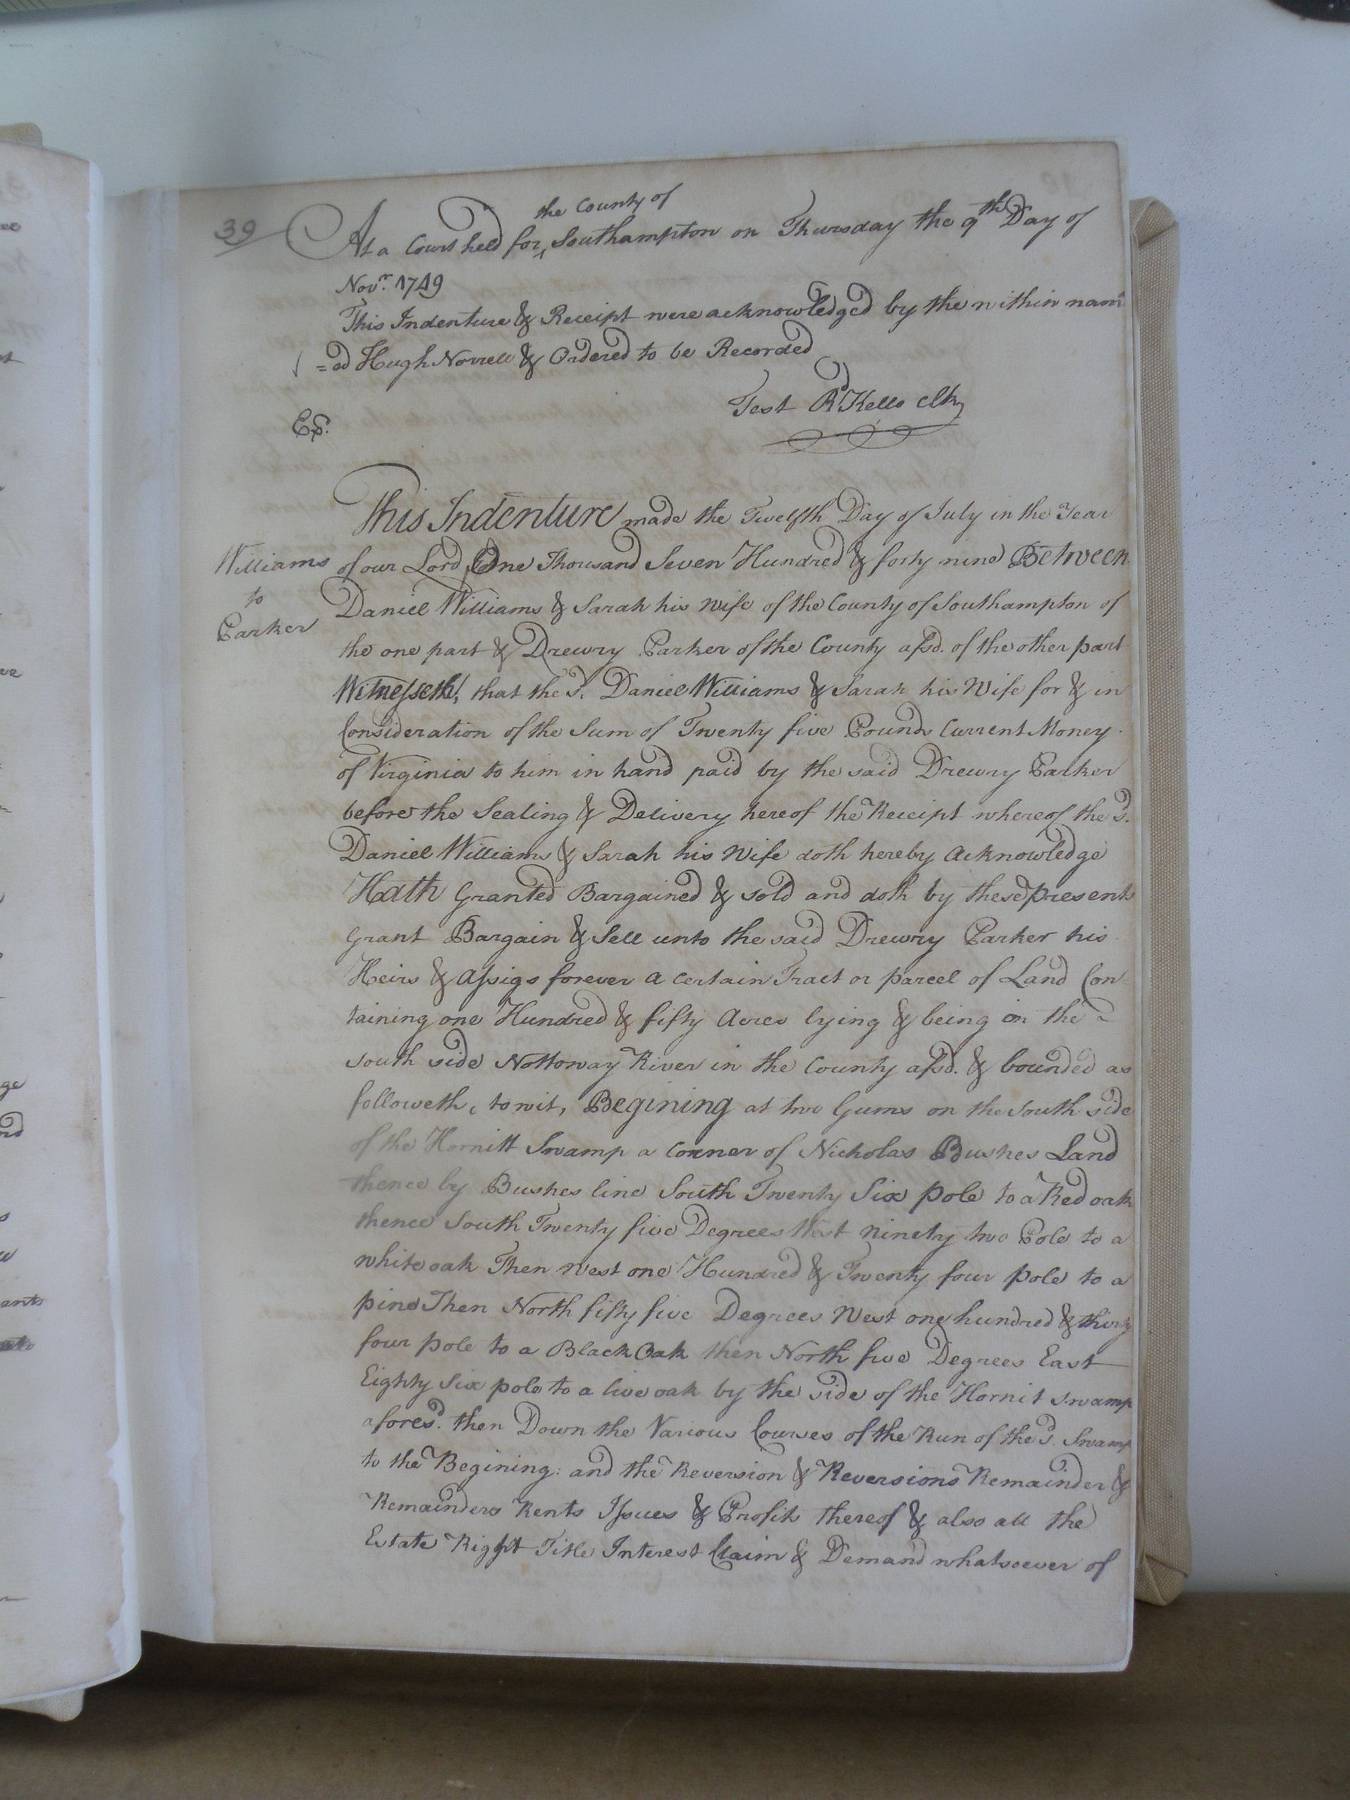 39
At a Court held for the County of Southampton on Thursday the 9th Day of
Novr. 1749
This Indenture & Receipt were acknowledged by the within nam
=ed Hugh Norvell & Ordered to be Recorded
Test Rd Kello Clk
Ex.
This Indenture made the Twelfth Day of July in the Year
Williams
to
Parker
of our Lord One Thousand Seven Hundred & forty nine Between
Daniel Williams & Sarah his Wife of the County of Southampton of
the one part & Drewry Parker of the County afsd. of the other part
Witnesseth, that the sd. Daniel Williams & Sarah his Wife for & in
Consideration of the Sum of Twenty five Pounds Current Money
of Virginia to him in hand paid by the said Drewry Parker
before the Sealing & Delivery hereof the Receipt whereof the sd.
Daniel Williams & Sarah his Wife doth hereby Acknowledge
Hath Granted Bargained & sold and doth by these presents
Grant Bargain & Sell unto the said Drewry Parker his
Heirs & Assigs forever a certain Tract or parcel of Land Con
taining one Hundred & fifty Acres lying & being on the
South side Nottoway River in the County afsd. & bounded as
followeth, towit, Begining at two Gums on the South side
of the Hornitt Swamp a corner of Nicholas Bushes Land
thence by Bushes line South Twenty Six pole to a Red oak
thence South Twenty five Degrees West ninety two Pole to a
white oak Then West one Hundred & Twenty four pole to a
pine Then North fifty five Degrees West one hundred & thirty
four pole to a Black Oak then North five Degrees East
Eighty Six pole to a live oak by the side of the Hornit Swamp
aforesd. then Down the Various Courses of the Run of the sd. Swamp
to the Begining: and the Reversion & Reversions Remainder &
Remainders Rents Issues & Profits thereof & also all the
Estate Right Title Interest Claim & Demand whatsoever of